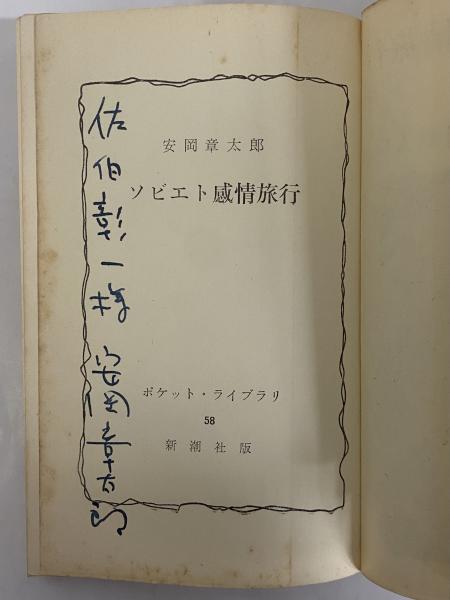 安岡章太郎
ソビエト感情旅行
ポケット・ライブラリ
58
新潮社版
佐伯彰一様 安岡章太郎